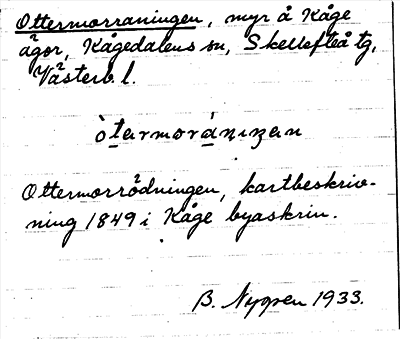 Ottermorraningen, myr å Kåge
ägor, Kågedalens sn, Skellefteå tg,
Västerb. l.
òtærmorániŋen
Ottermorrödningen, kartbeskriv-
ning 1849 i Kåge byaskrin.
B. Nygren 1933.